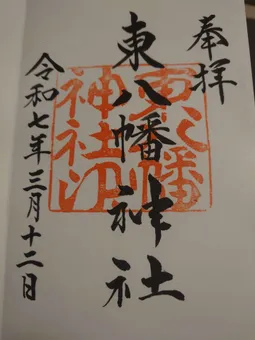 奉拝
東八幡神社
令和七年三月十二日
東八幡
神社印